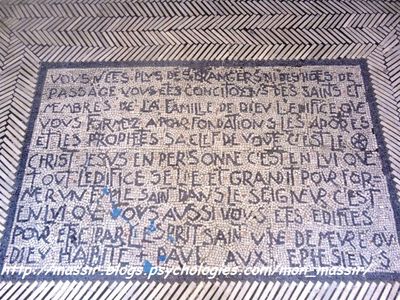 VOUS N'ÊTES PLUS DES ETRANGERS NI DES HOTES DE
PASSAGE VOUS ETES CONCITOYENS DES SAINTS ET
MEMBRES DE LA FAMILLE DE DIEU L'EDIFICE QUE
VOUS FORMEZ A POUR FONDATIONS LES APOTRES
ET LES PROPHETES SA CLEF DE VOUTE C'EST LE
CHRIST JESUS EN PERSONNE C'EST EN LUI QUE
TOUT L'EDIFICE SE LIE ET GRANDIT POUR FOR
MER UN TEMPLE SAINT DANS LE SEIGNEUR C'EST
EN LUI QUE VOUS AUSSI VOUS ETES EDIFIES
POUR ETRE PAR L'ESPRIT SAINT UNE DEMEURE OU
DIEU HABITE PAUL AUX EPHESIENS
http://massir-blogs.psychologies.com/mon_massir/